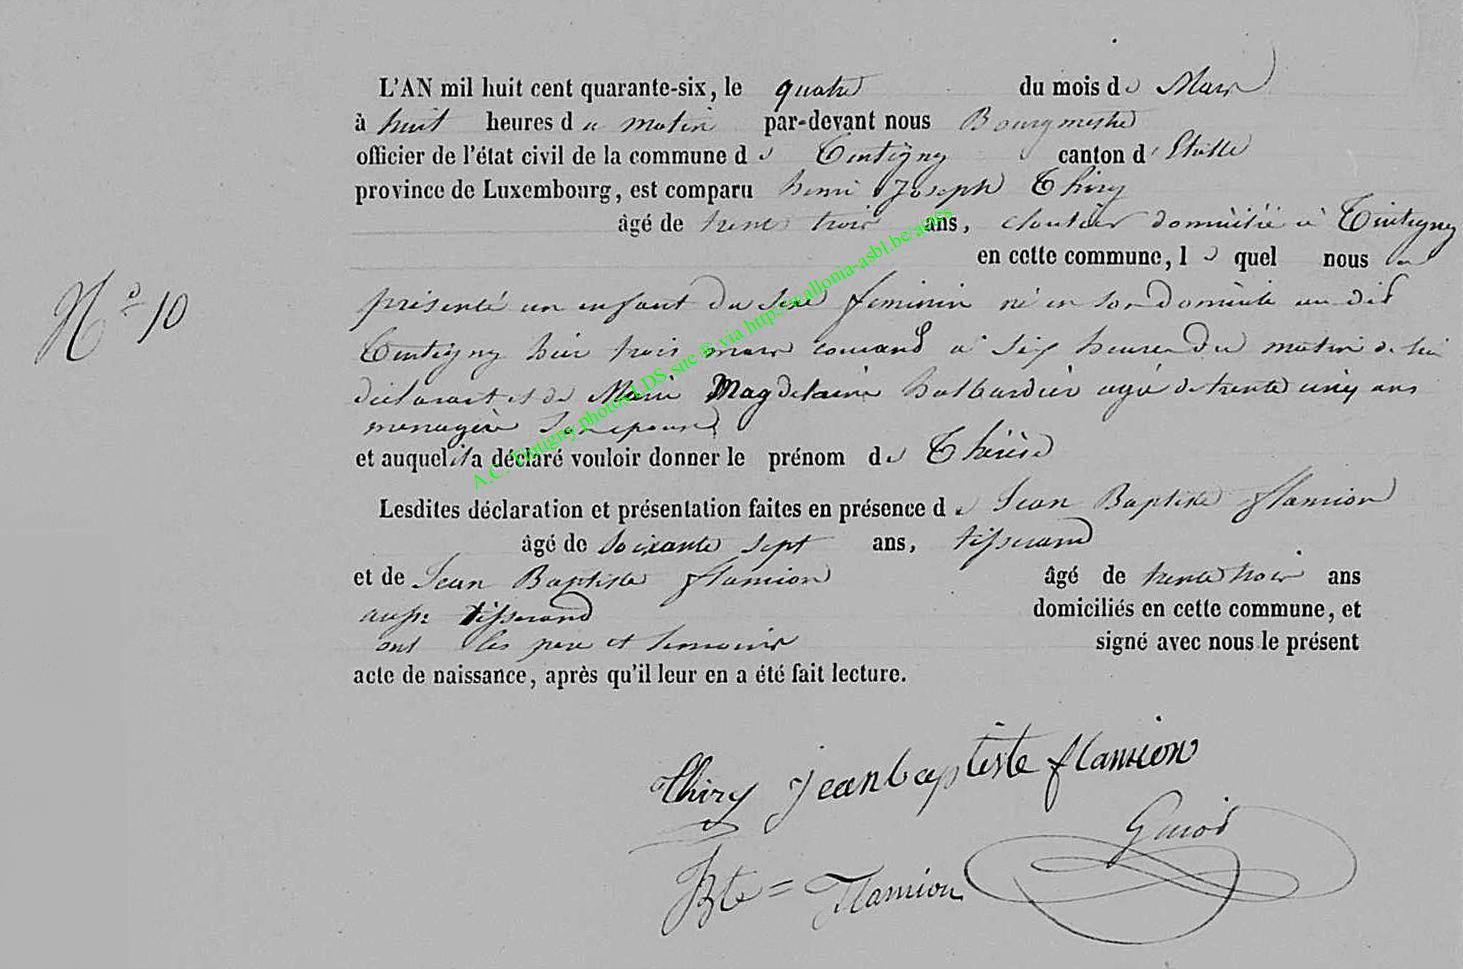 L'AN mil huit cent quarante-six, le quatre du mois de Mars
à huit heures du matin par-devant nous Bourgmestre
officier de l'état civil de la commune de Tintigny canton d'Etalle
province de Luxembourg, est comparu henri Joseph Thiry
âgé de trente trois ans, cloutier domicilié à Tintigny
en cette commune, le quel nous a
N° 10
présenté un enfant du sexe feminin né en son domicile au dit
Tintigny hier trois mars courant à six heures du matin de lui
déclarant et de Marie Magdelaine halbardier agé de trente cinq ans
menagère son epouse
et auquel il a déclaré vouloir donner le prénom de Thérèse
Lesdites déclaration et présentation faites en présence de Jean Baptiste flamion
âgé de soixante sept ans, tisserand
et de Jean Baptiste flamion âgé de trente trois ans
aussi tisserand domiciliés en cette commune, et
ont les pere et temoins signé avec nous le présent
acte de naissance, après qu'il leur en a été fait lecture.
Thiry jean baptiste flamion
JBte = Flamion
A.C. Tintigny photos LDS site © via http://wallonia-asbl.be/actes